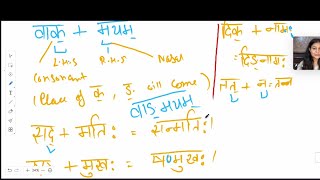 वाक् + मयम्
L.H.S R.H.S Nasal
Consonant
(Place of क्, ङ् will come)
वाङमयम्
सद् + मतिः = सन्मतिः।
+ मुखः = षण्मुखः।
दिक् + नागः
= दिङनागः
तत् + नः